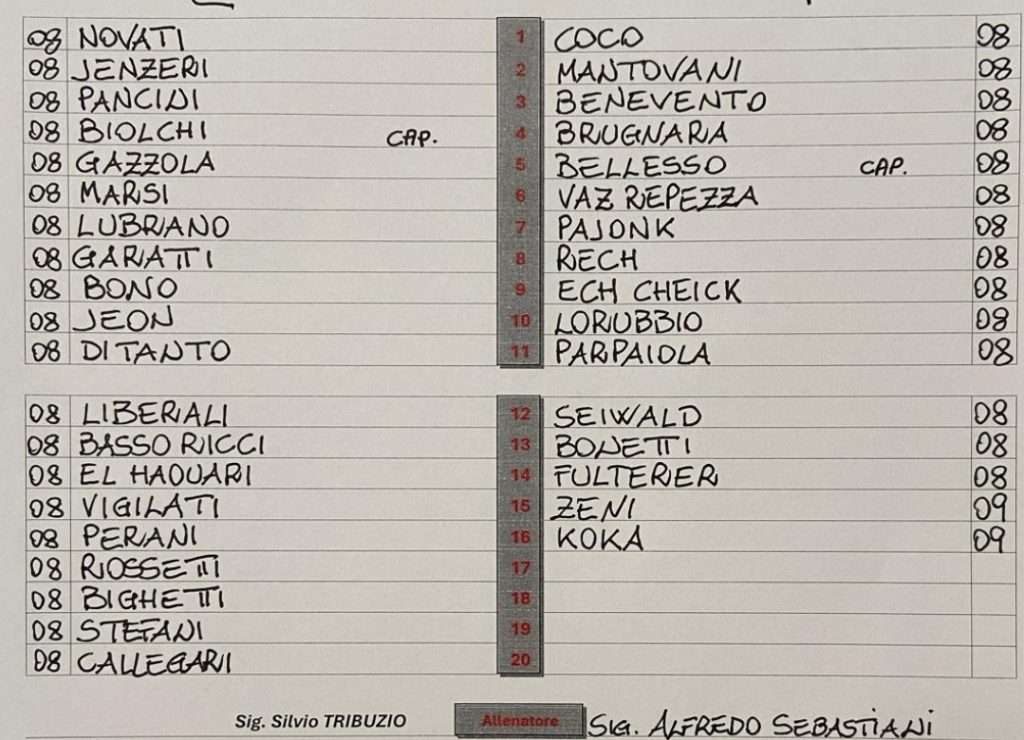 08 NOVATI 1 COCO 08
08 JENZERI 2 MANTOVANI 08
08 PANCINI 3 BENEVENTO 08
08 BIOLCHI CAP. 4 BRUGNARA 08
08 GAZZOLA 5 BELLESSO CAP. 08
08 MARSI 6 VAZ REPEZZA 08
08 LUBRANO 7 PAJONK 08
08 GARATTI 8 RECH 08
08 BONO 9 ECH CHEICK 08
08 JEON 10 LORUBBIO 08
08 DI TANTO 11 PARPAIOLA 08
08 LIBERALI 12 SEIWALD 08
08 BASSO RICCI 13 BONETTI 08
08 EL HAOUARI 14 FULTERER 08
08 VIGILATI 15 ZENI 09
08 PERANI 16 KOKA 09
08 ROSSETTI 17
08 BIGHETTI 18
08 STEFANI 19
08 CALLEGARI 20
Sig. Silvio TRIBUZIO Allenatore SIG. ALFREDO SEBASTIANI